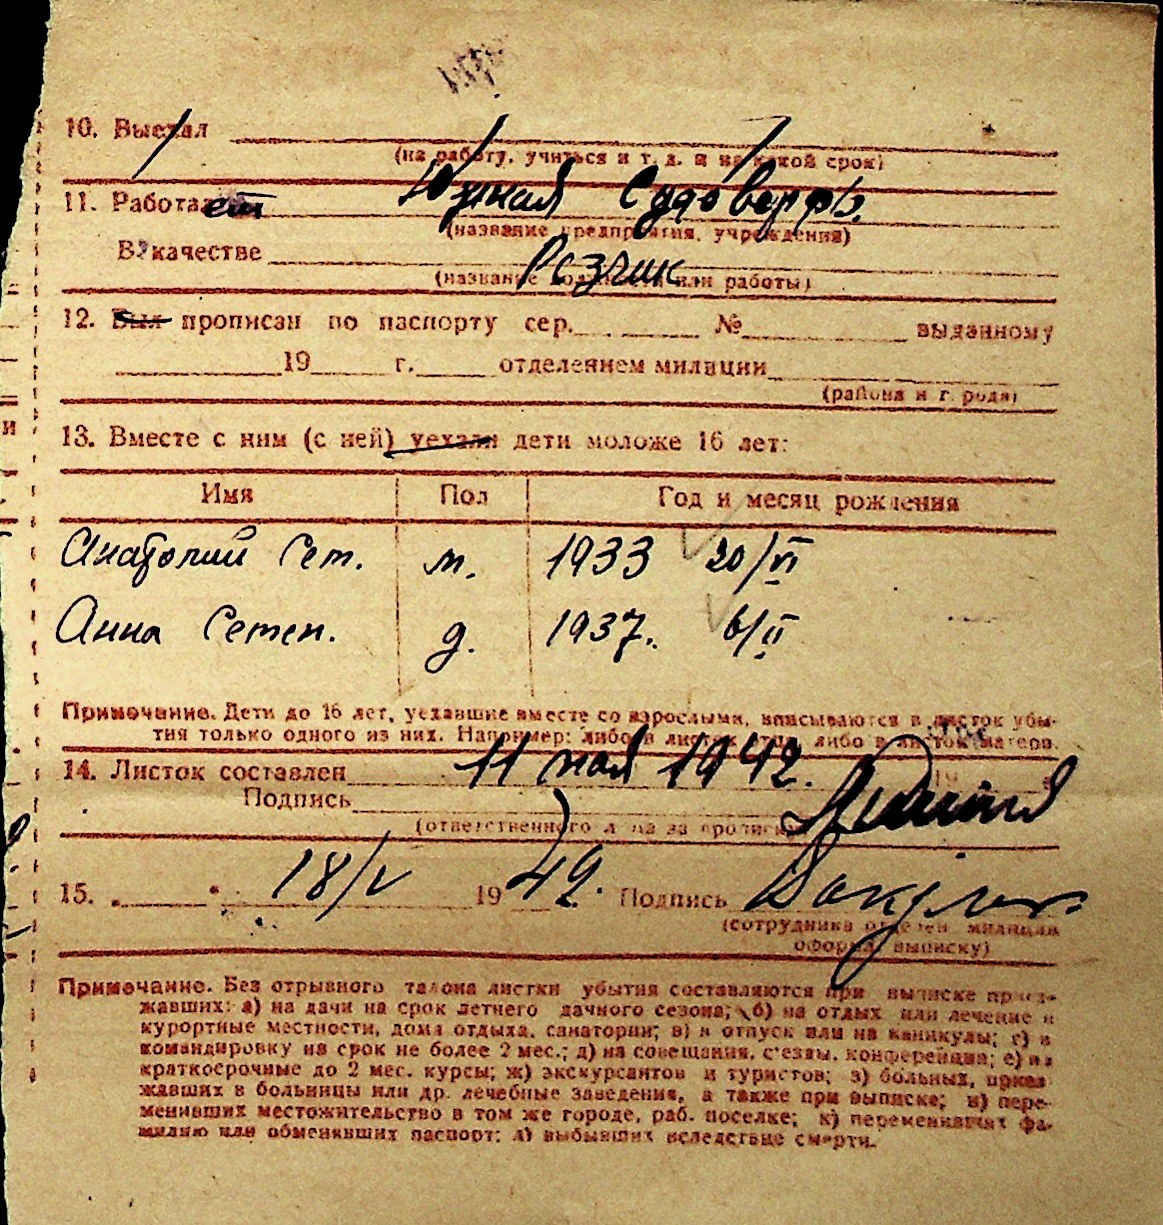 10. Выехал
(на работу, учиться и т. д. и на какой срок)
11. Работает Южная Судоверфь
(название предприятия, учреждения)
В качестве Резчик
(название должности или работы)
12. Был прописан по паспорту сер. № выданному
19 г. отделением милиции
(района и города)
13. Вместе с ним (с ней) уехали дети моложе 16 лет:
Имя Пол Год и месяц рождения
Анатолий Сем. м. 1933 20/VI
Анна Семен. д. 1937. 6/II
Примечание. Дети до 16 лет, уехавшие вместе со взрослыми, вписываются в листок убы-
тия только одного из них. Например: либо в листок отца, либо в листок матери.
14. Листок составлен 11 мая 1942.
Подпись
(ответственного лица за прописку)
15. 18/V 1942. Подпись
(сотрудника отделен. милиции
оформ. выписку)
Примечание. Без отрывного талона листки убытия составляются при выписке приез-
жавших: а) на дачи на срок летнего дачного сезона; б) на отдых или лечение в
курортные местности, дома отдыха, санатории; в) в отпуск или на каникулы; г) в
командировку на срок не более 2 мес.; д) на совещания, с'езды, конференции; е) на
краткосрочные до 2 мес. курсы; ж) экскурсантов и туристов; з) больных, приез-
жавших в больницы или др. лечебные заведения, а также при выписке; и) пере-
менивших местожительство в том же городе, раб. поселке; к) переменивших фа-
милию или обменявших паспорт; л) выбывших вследствие смерти.